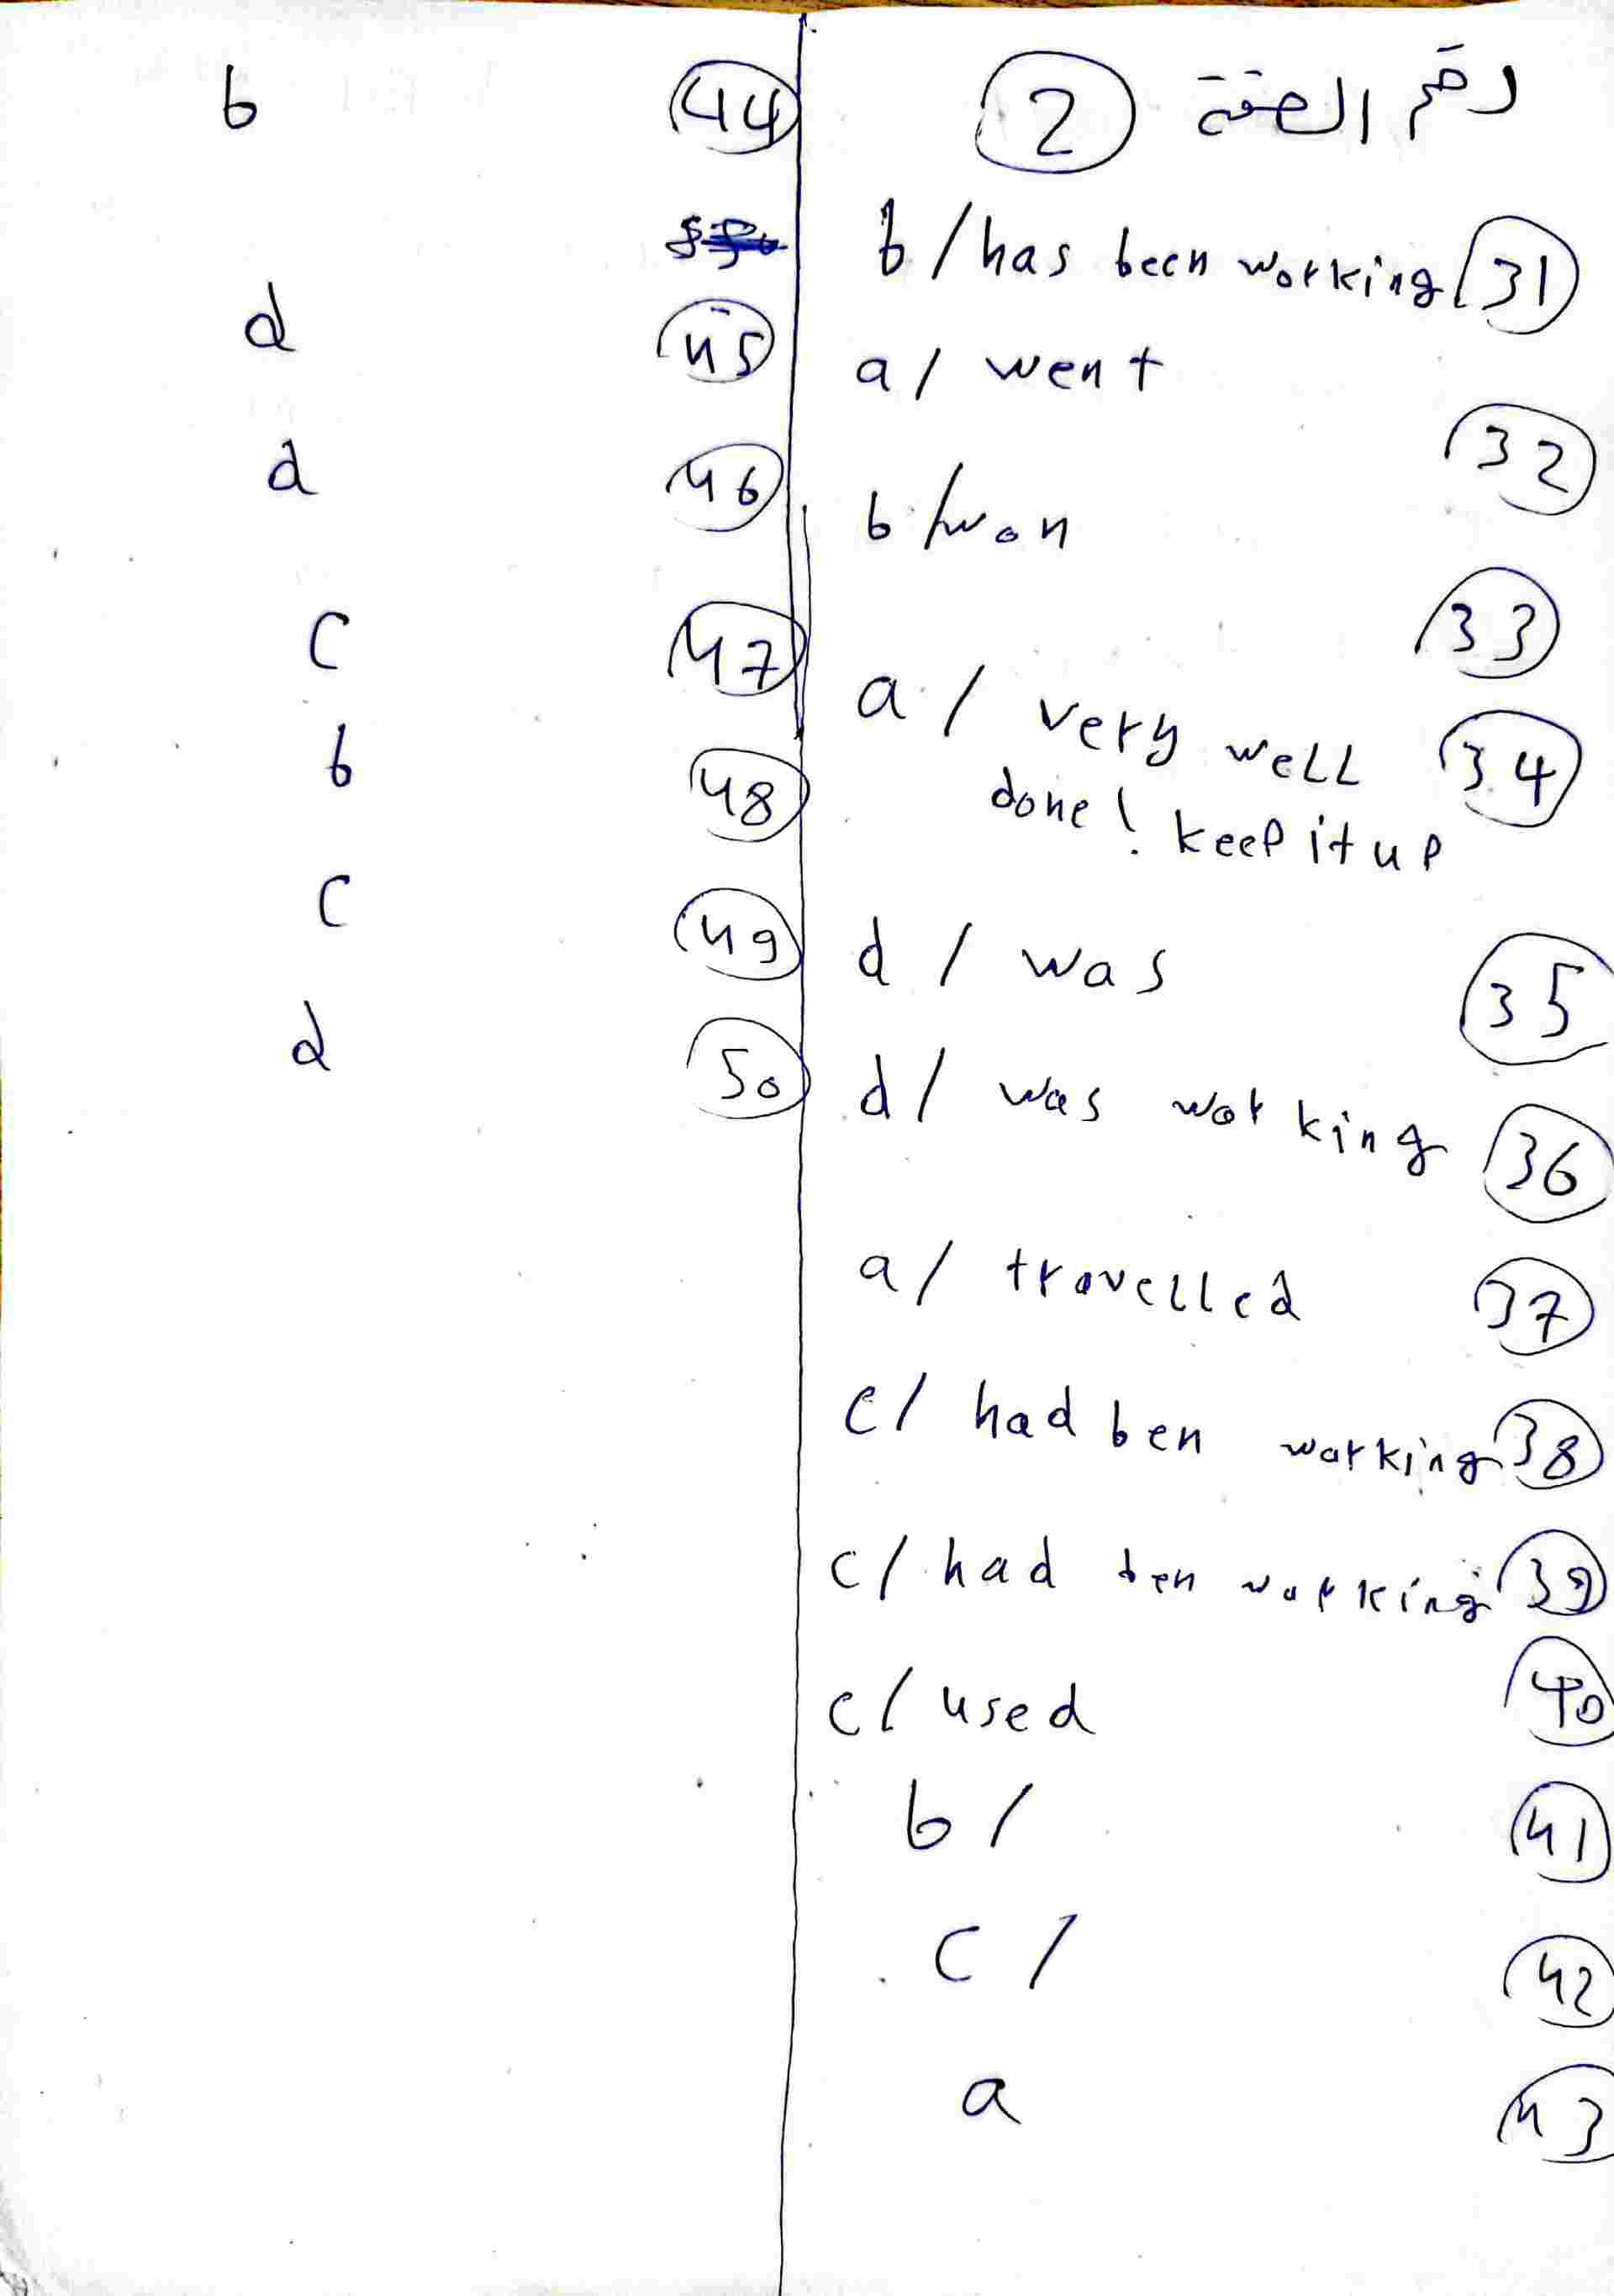 رقم الصفحة 2
31 b / has been working
32 a / went
33 b / won
34 a / very well
done! keep it up
35 d / was
36 d / was working
37 a / travelled
38 c / had ben working
39 c / had ben working
40 c / used
41 b /
42 c /
43 a
44 b
45 d
46 d
47 c
48 b
49 c
50 d